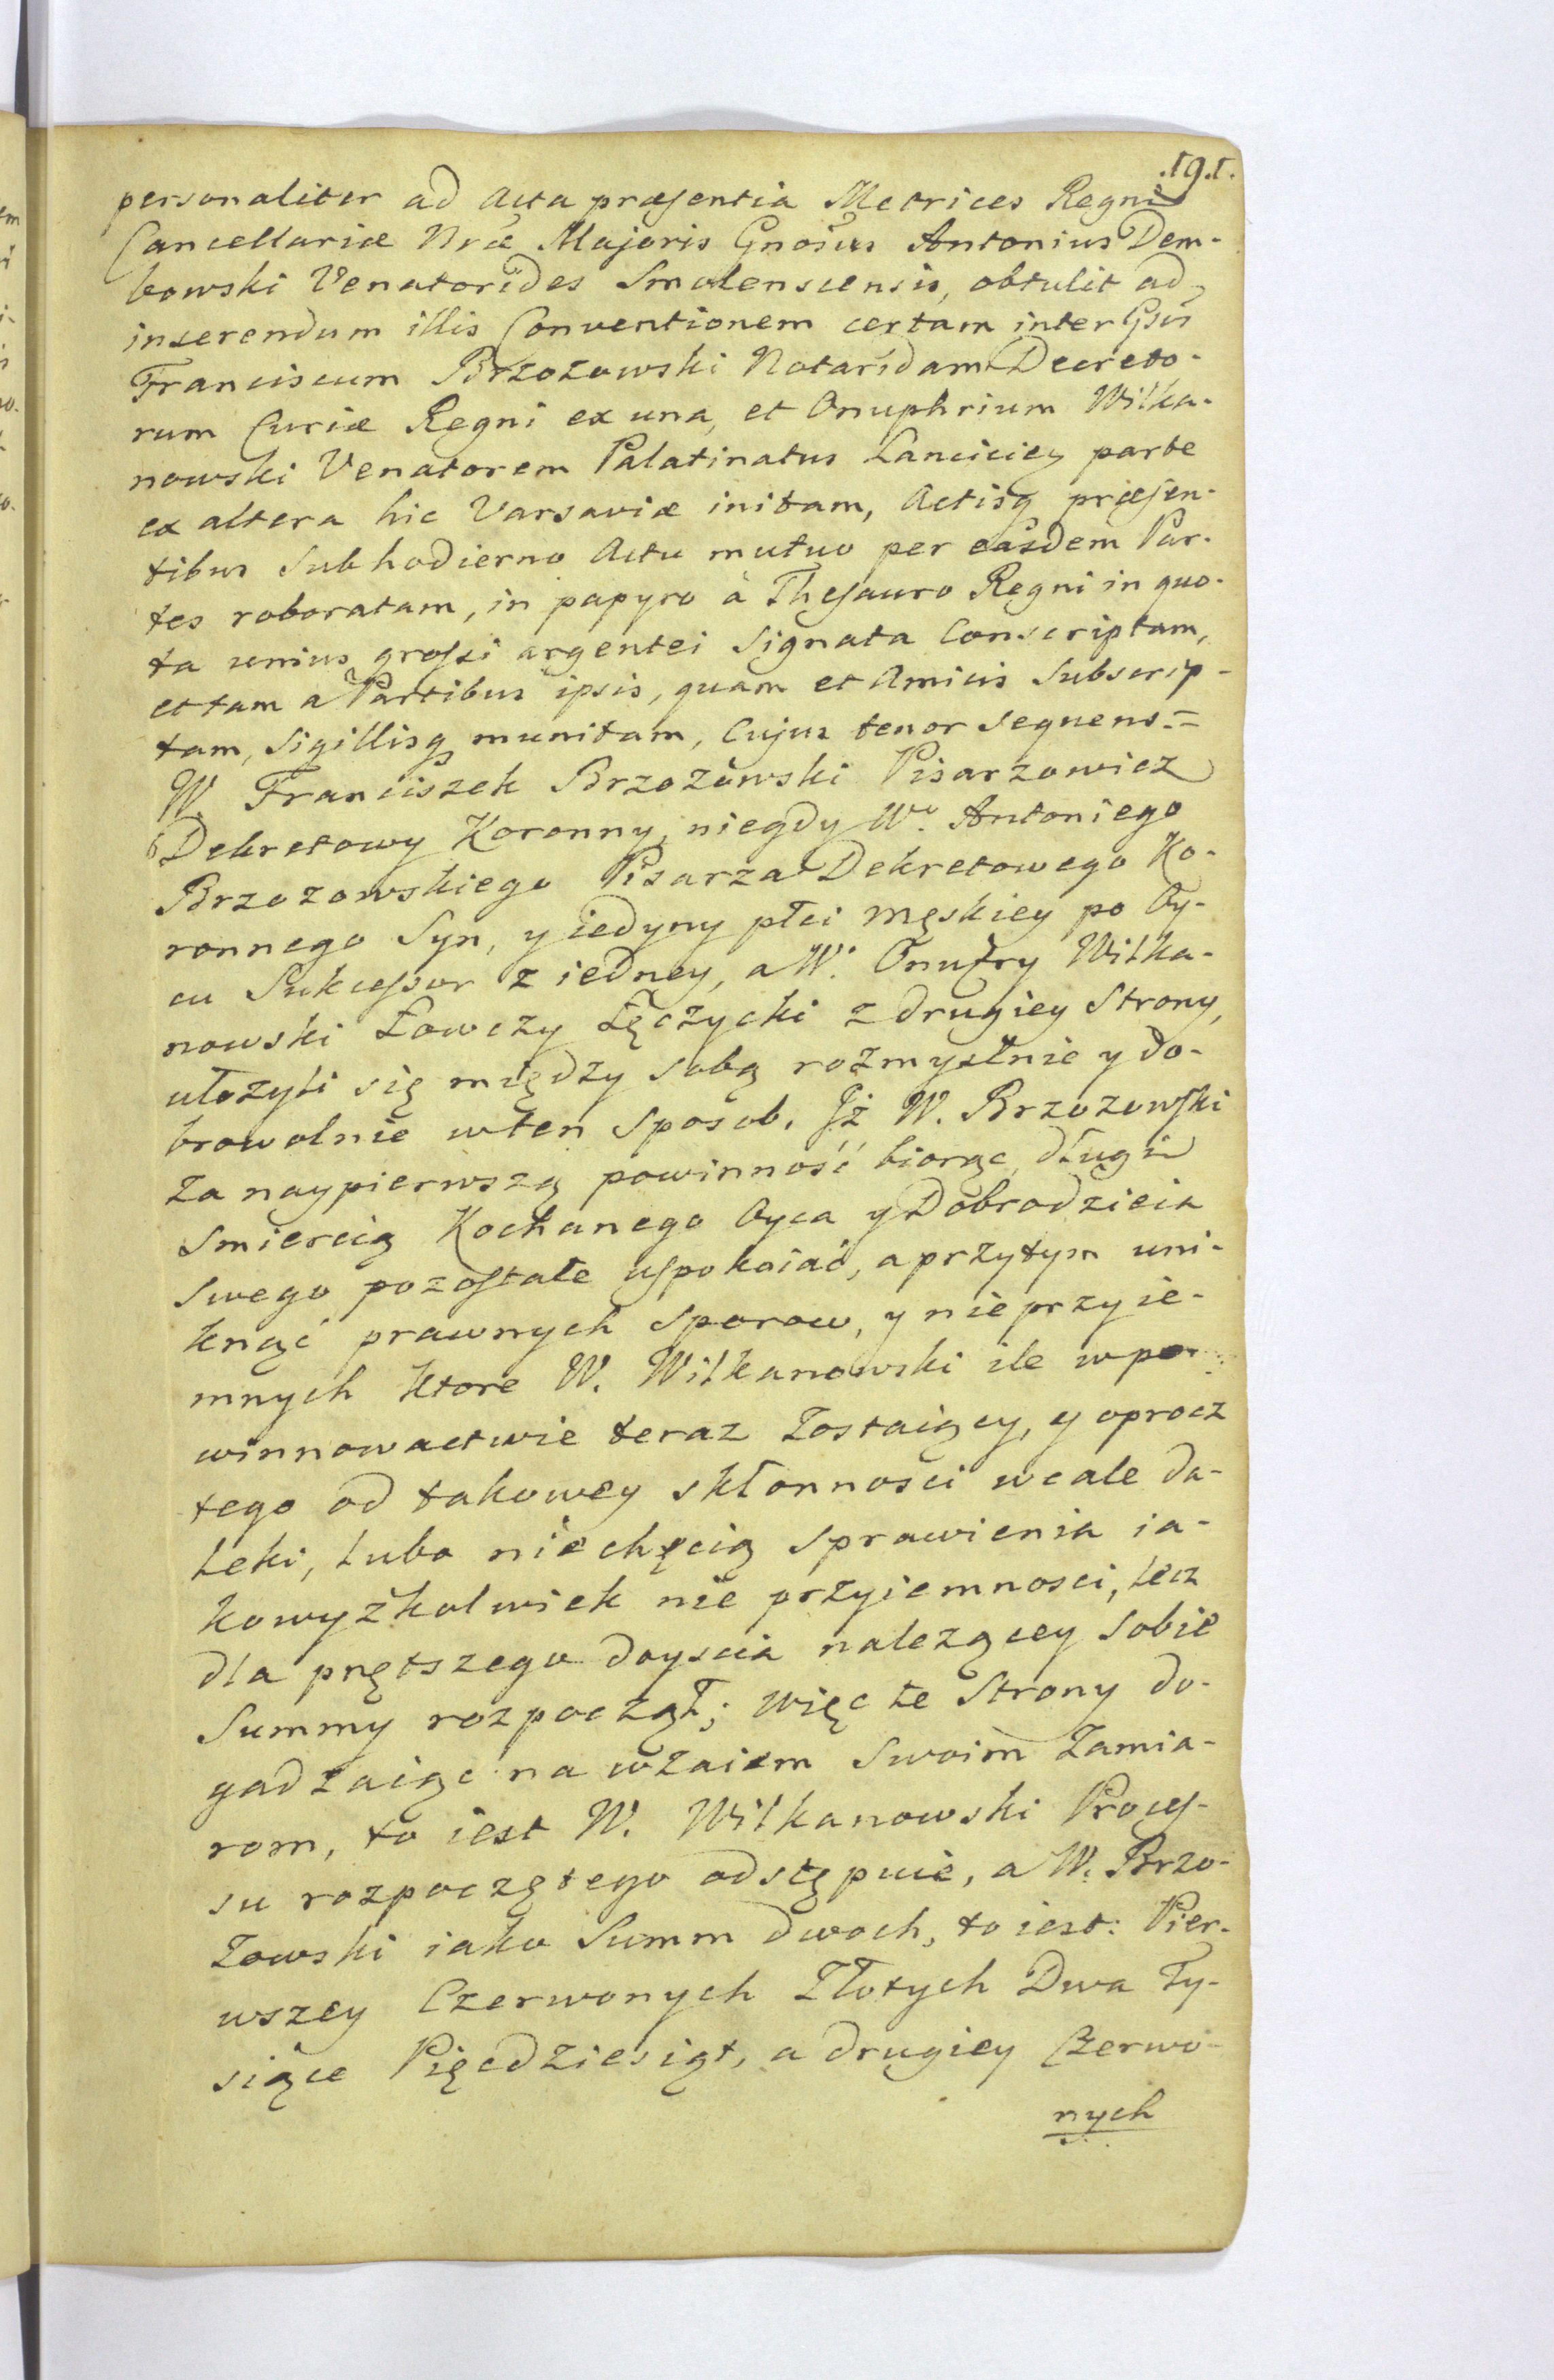 .191.
personaliter ad Acta præsentia Metrices Regni
Cancellariæ Nræ Majoris Gnosus Antonius Dem-
bowski Venatorides Smolenscensis, obtulit ad
inserendum illis Conventionem certam inter Gsos
Franciscum Brzozowski Notaridam Decreto-
rum Curiæ Regni ex una, et Onuphrium Wilka-
nowski Venatorem Palatinatus Lanciciey parte
ex altera hic Varsaviæ initam, Actisq præsen-
tibus Sub hodierno Actu mutuo per easdem Par-
tes roboratam, in papyro à Thesauro Regni in quo-
ta unius grossi argentei Signata Conscriptam,
et tam a Partibus ipsis, quam et Amicis Subscrip-
tam, Sigillisq munitam, Cujus tenor Sequens=
W. Franciszek Brzozowski Pisarzowicz
Dekretowy Koronny, niegdy Wo. Antoniego
Brzozowskiego Pisarza Dekretowego Ko-
ronnego Syn, y iedyny płci męskiey po Oy-
cu Sukcessor z iedney, a W. Onufry Wilka-
nowski Łowczy Łęczycki z drugiey Strony,
ułozyli się między sobą rozmyslnie y do-
browolnie w ten Sposob. Iż W. Brzozowski
Za naypierwszą powinność biorąc długi
Smiercią Kochanego Oyca y Dobrodzieia
Swego pozostałe uspokoiać, a przytym uni-
knąć prawnych Sporow, y nieprzyie-
mnych ktore W. Wilkanowski ile w po-
winnowactwie teraz Zostaiący, y oprocz
tego od takowey skłonności wcale da-
leki, lubo niechęcią Sprawienia ia-
kowyżkolwiek nie przyiemnosci, lecz
dla prętszego doyscia nalezącey Sobie
Summy rozpoczął; Więc te Strony do-
gadzaiąc na wzaiem Swoim Zamia-
rom, to iest W. Wilkanowski Proces-
su rozpoczętego odstępuie, a W. Brzo-
zowski iako Summ dwoch, to iest: Pier-
wszey Czerwonych Złotych Dwa Ty-
siące Pięcdziesiąt, a drugiey Czerwo-
nych